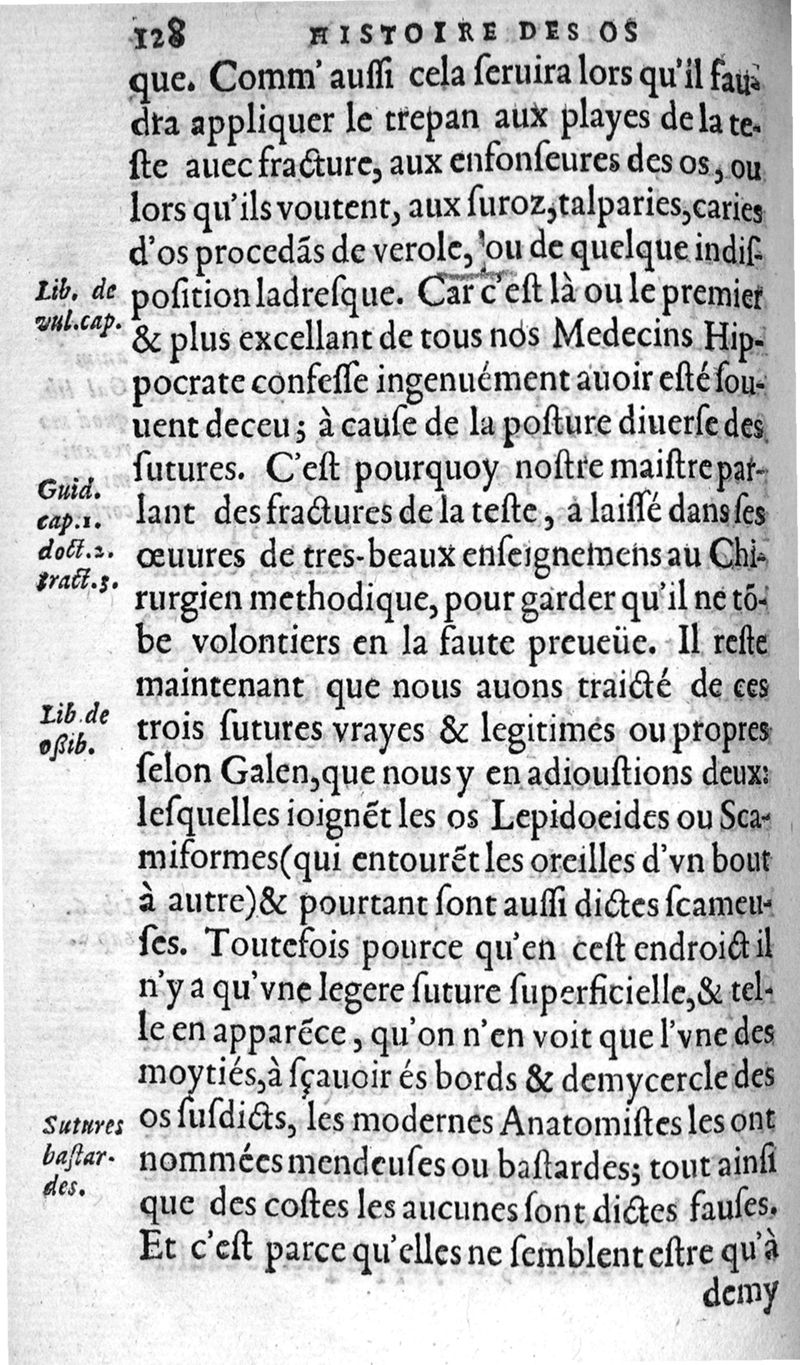 128 HISTOIRE DES OS
que. Comm' auſſi cela ſeruira lors qu'il fau-
dra appliquer le trepan aux playes de la te-
ſte auec fracture, aux enfonſeures des os, ou
lors qu'ils voutent, aux ſuroz, talparies, caries
d'os procedãs de verole, ou de quelque indiſ-
Lib. de
vul.cap.
poſition ladreſque. Car c'eſt là ou le premier
& plus excellant de tous nos Medecins Hip-
pocrate confeſſe ingenuément auoir eſté ſou-
uent deceu; à cauſe de la poſture diuerſe des
ſutures. C'eſt pourquoy noſtre maiſtre par-
Guid.
cap.1.
doct.2.
tract.3.
lant des fractures de la teſte, a laiſſé dans ſes
œuures de tres-beaux enſeignemens au Chi-
rurgien methodique, pour garder qu'il ne tõ-
be volontiers en la faute preueüe. Il reſte
maintenant que nous auons traicté de ces
Lib. de
oſsib.
trois ſutures vrayes & legitimes ou propres
ſelon Galen, que nous y en adiouſtions deux:
leſquelles ioignẽt les os Lepidoeides ou Sca-
miformes (qui entourẽt les oreilles d'vn bout
à autre) & pourtant ſont auſſi dictes ſcameu-
ſes. Toutefois pource qu'en ceſt endroict il
n'y a qu'vne legere ſuture ſuperficielle, & tel-
le en apparẽce, qu'on n'en voit que l'vne des
moytiés, à ſçauoir és bords & demycercle des
Sutures
baſtar-
des.
os ſuſdicts, les modernes Anatomiſtes les ont
nommées mendeuſes ou baſtardes; tout ainſi
que des coſtes les aucunes ſont dictes fauſes.
Et c'eſt parce qu'elles ne ſemblent eſtre qu'à
demy